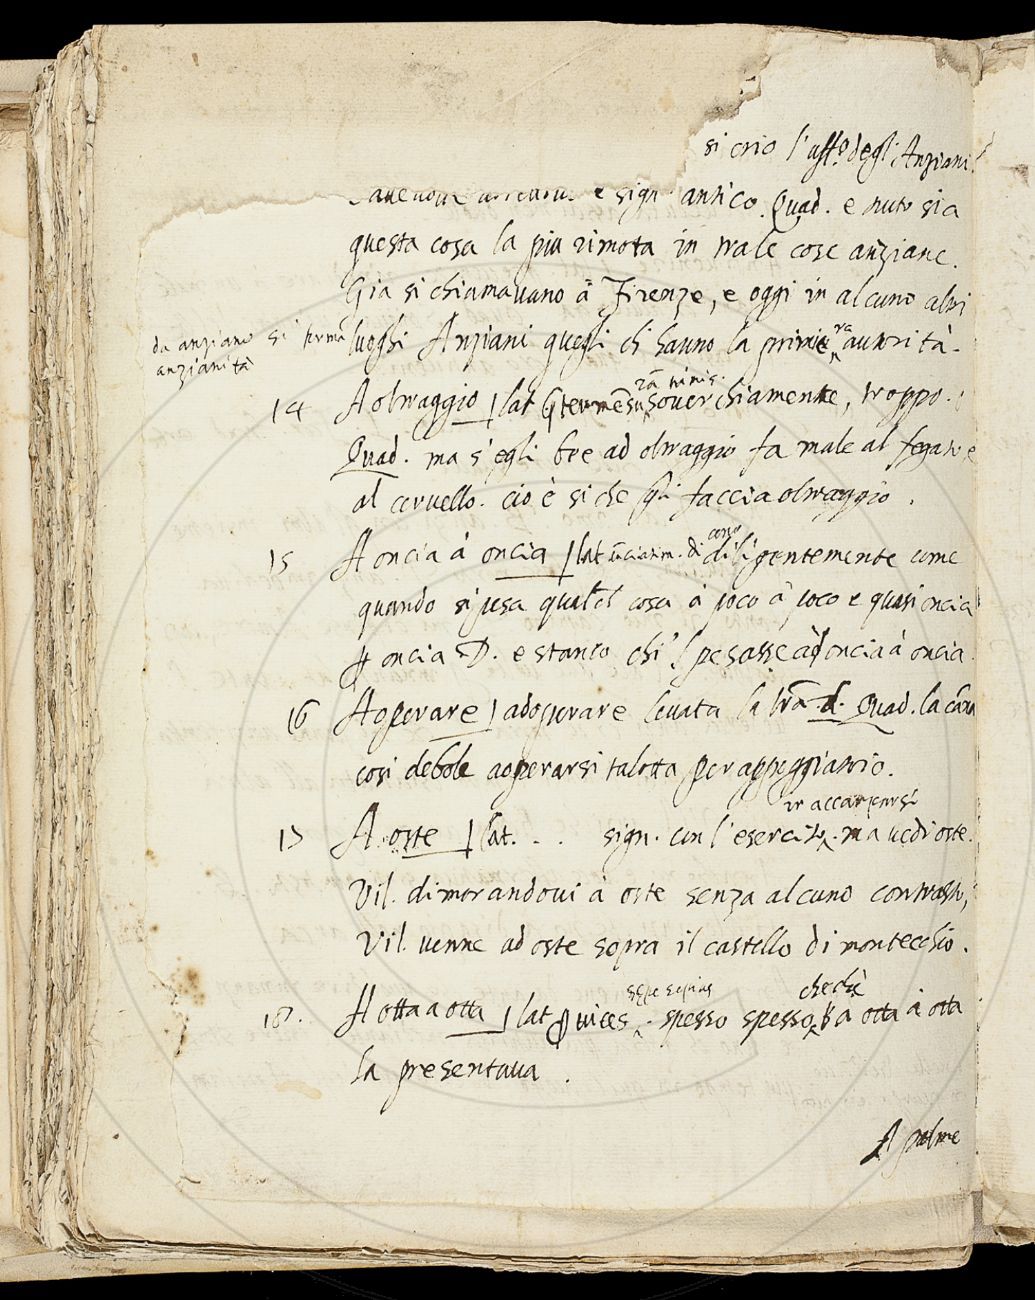 si criò l'uff.o degli Anziani.
e sign. antico. Quad. e tuto sia
questa cosa la piu rimota in tra le cose anziane.
Gia si chiamavano à Firenze, e oggi in alcuno altri
luoghi Anziani quegli ch hanno la primiera autorità.
da anziano si forma
anzianità
14 A oltraggio | lat soverchiamente, troppo.
Quad. ma s'egli bee ad oltraggio fa male al fegato e
al cervello. cio è si che gli faccia oltraggio.
15 A oncia à oncia | lat unciatim. di corso diligentemente come
quando si pesa qualch cosa à poco à poco e quasi oncia
p oncia D. e stanco chi 'l pesasse ad oncia à oncia
16 Aoperare | adoperare levata la lra .d. Quad. la carn
cosi debole aoperarsi talotta per appoggiatoio.
17 A oste | lat. . . sign. con l'esercito. ir accamparsi ma vedi oste.
Vil. dimorandovi à oste senza alcuno contrasto,
Vil. venne ad oste sopra il castello di montecchio.
18. A otta a otta | lat p vices sepe sepius. spesso spesso à otta à otta
la presentava.
A palme